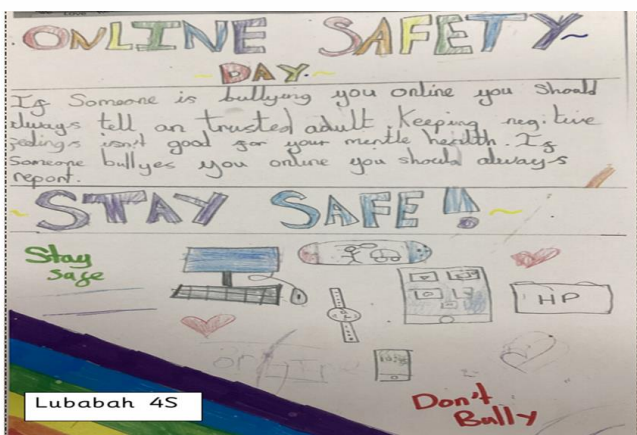 ONLINE SAFETY
~DAY~
If Someone is bullying you online you should
always tell an trusted adult. Keeping negitive
feelings isn't good for your mentle health. If
Someone bullyes you online you should always
report.
~STAY SAFE!!~
Stay
safe
HP
Don't
Bully
Lubabah 4S